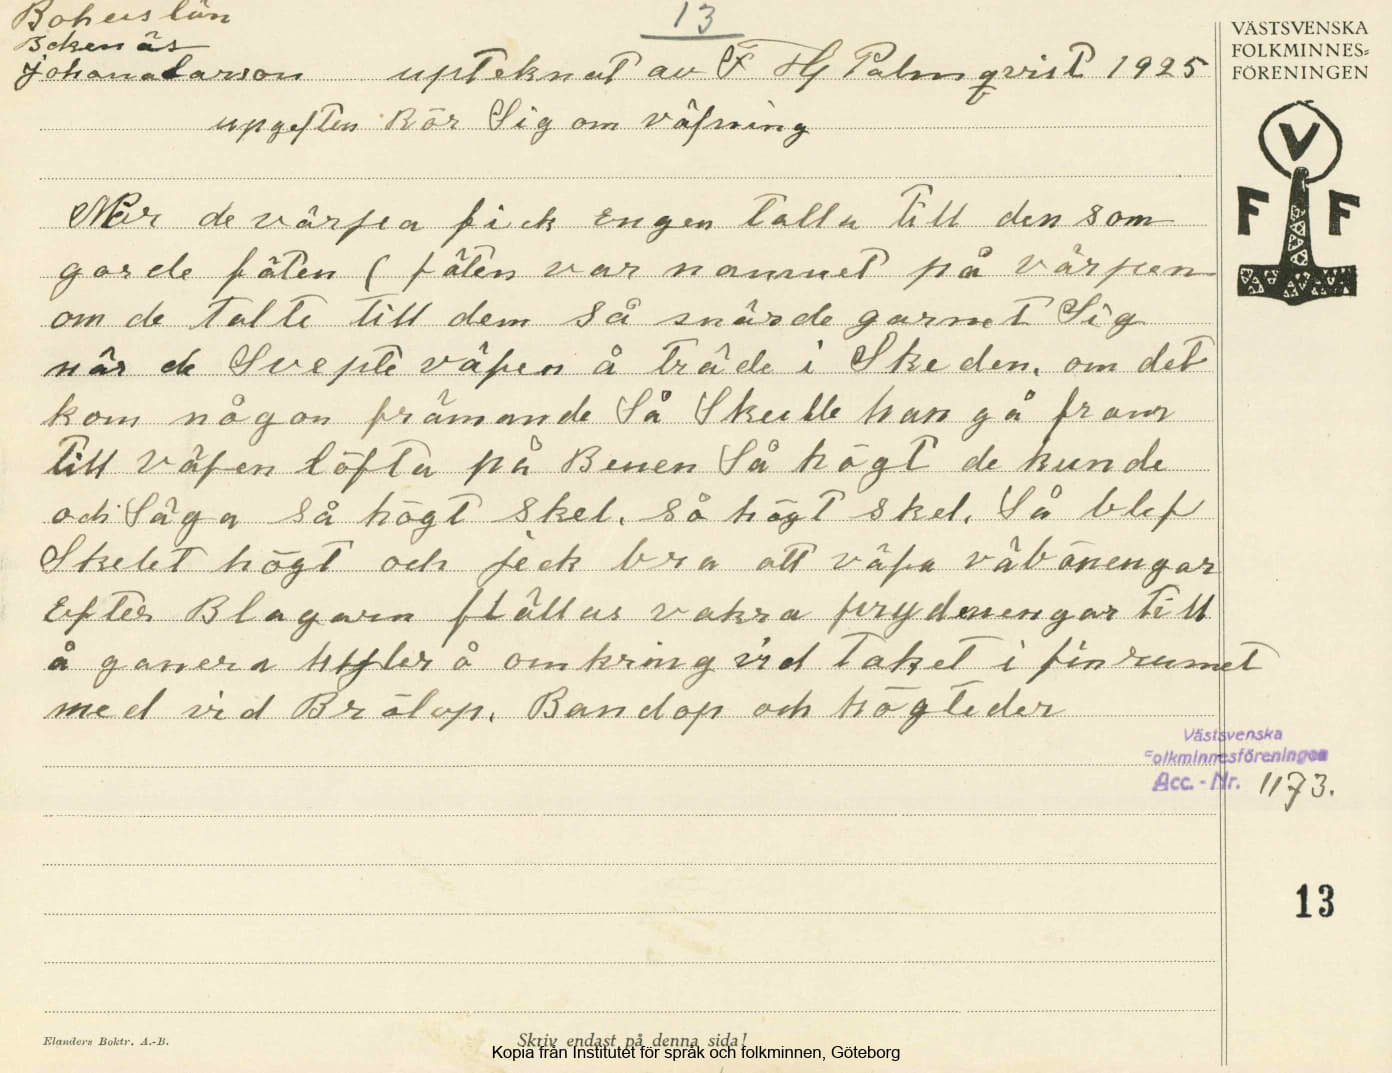 13
Bohuslän
Bokenäs
Johanalarson upteknat av F Hj Palmqvist 1925
upgeften Rör Sig om väfning
När de värpa fick Engen talla till den som
gorde fäten ( fäten var namnet på värpen
om de talte till dem så snärde garnet Sig
när de Svepte väfen å träde i Skeden. om det
kom någon främande Så Skulle han gå fram
till väfen löfta på Benen Så högt de kunde
och Säga så högt skel. så högt skel. Så blef
Skelet högt och jeck bra att väfa väbönengar
Efter Blagarn flällas vakra prydnengar till
å ganera hyler å omkring vid taket i finrumet
med vid Brölop. Bandop och högteder
VÄSTSVENSKA
FOLKMINNES-
FÖRENINGEN
V
F F
Västsvenska
Folkminnesföreningen
Acc.-Nr. 1173.
13
Elanders Boktr. A.-B.
Skriv endast på denna sida!
Kopia från Institutet för språk och folkminnen, Göteborg